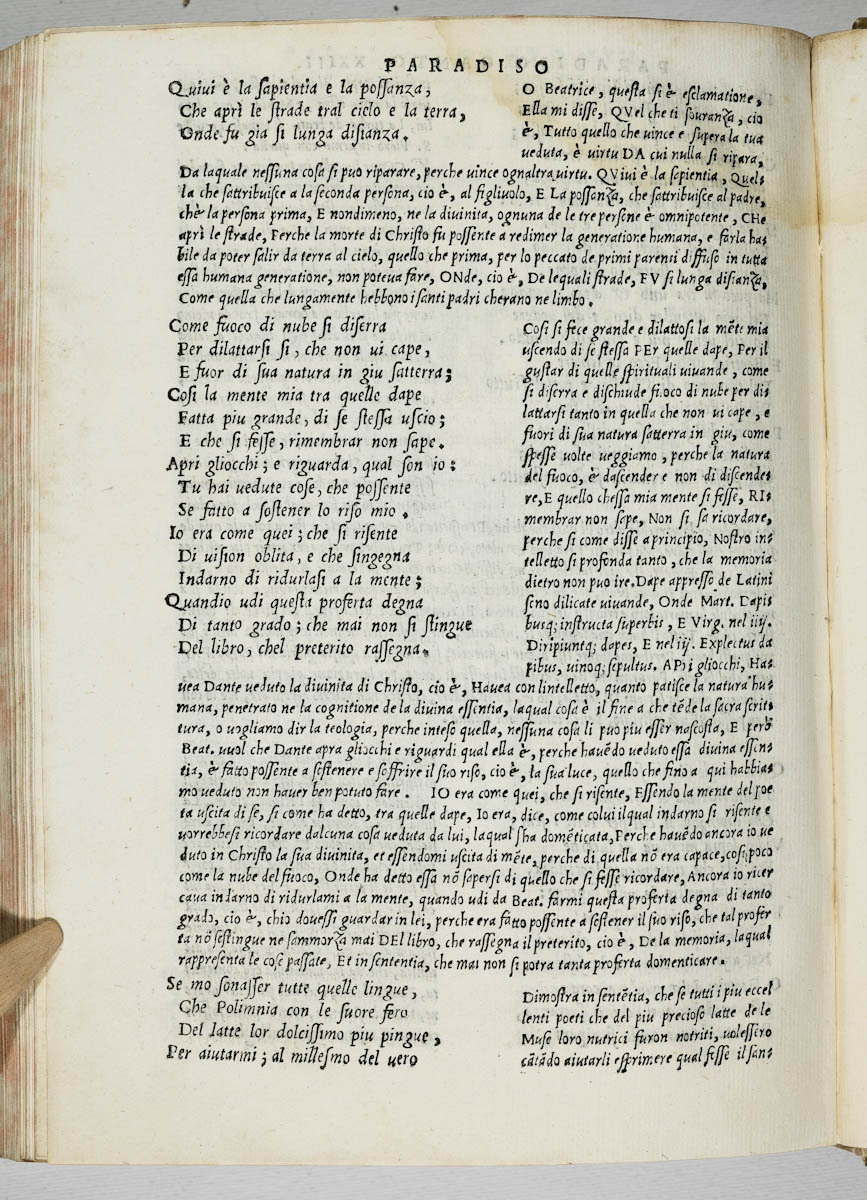 PARADISO
Quiui è la sapientia e la possanza,
Che aprì le strade tral cielo e la terra,
Onde fu gia si lunga disianza.
O Beatrice, questa si è esclamatione,
Ella mi disse, QVel che ti souranza, cio
è, Tutto quello che vince e supera la tua
veduta, è virtu DA cui nulla si ripara,
Da laquale nessuna cosa si puo riparare, perche vince ognaltra virtu. QViui è la sapientia, Quel-
la che sattribuisce a la seconda persona, cio è, al figliuolo, E La possanza, che sattribuisce al padre,
chè la persona prima, E nondimeno, ne la diuinita, ognuna de le tre persone è omnipotente, CHe
aprì le strade, Perche la morte di Christo fu possente a redimer la generatione humana, e farla ha-
bile da poter salir da terra al cielo, quello che prima, per lo peccato de primi parenti diffuso in tutta
essa humana generatione, non poteua fare, ONde, cio è, De lequali strade, FV si lunga disianza,
Come quella che lungamente hebbono i santi padri cherano ne limbo.
Come fuoco di nube si diserra
Per dilattarsi si, che non ui cape,
E fuor di sua natura in giu satterra;
Cosi la mente mia tra quelle dape
Fatta piu grande, di se stessa uscio;
E che si fesse, rimembrar non sape.
Apri gliocchi; e riguarda, qual son io:
Tu hai uedute cose, che possente
Se fatto a sostener lo riso mio.
Io era come quei; che si risente
Di uision oblita, e che singegna
Indarno di ridurlasi a la mente;
Quandio udi questa proferta degna
Di tanto grado; che mai non si stingue
Del libro, chel preterito rassegna.
Cosi si fece grande e dilattosi la mẽte mia
uscendo di se stessa PEr quelle dape, Per il
gustar di quelle spirituali uiuande, come
si diserra e dischiude fuoco di nube per di-
lattarsi tanto in quella che non ui cape, e
fuori di sua natura satterra in giu, come
spesse uolte ueggiamo, perche la natura
del fuoco, è dascender e non di discende-
re, E quello chessa mia mente si fesse, RI-
membrar non sape, Non si, sa ricordare,
perche si come disse a principio, Nostro in-
telletto si profonda tanto, che la memoria
dietro non puo ire. Dape appresso de Latini
sono dilicate uiuande, Onde Mart. Dapi-
busq; instructa superbis, E Virg. nel iiij.
Diripiuntq; dapes, E nel iij. Explectus da
pibus, uinoq; sepultus. APri gliocchi, Ha-
uea Dante ueduto la diuinita di Christo, cio è, Hauea con lintelletto, quanto patisce la natura hu-
mana, penetrato ne la cognitione de la diuina essentia, laqual cosa è il fine a che tẽde la sacra scrit-
tura, o uogliamo dir la teologia, perche inteso quella, nessuna cosa li puo piu esser nascosta, E però
Beat. uuol che Dante apra gliocchi e riguardi qual ella è, perche hauẽdo ueduto essa diuina essen-
tia, è fatto possente a sostenere e soffrire il suo riso, cio è, la sua luce, quello che fino a qui habbia-
mo ueduto non hauer ben potuto fare. IO era come quei, che si risente, Essendo la mente del poe
ta uscita di se, si come ha detto, tra quelle dape, Io era, dice, come colui ilqual indarno si risente e
uorrebbesi ricordare dalcuna cosa ueduta da lui, laqual sha domẽticata, Perche hauẽdo ancora io ue
duto in Christo la sua diuinita, et essendomi uscita di mẽte, perche di quella nõ era capace, cosi poco
come la nube del fuoco, Onde ha detto essa nõ sapersi di quello che si fesse ricordare, Ancora io ricer
caua indarno di ridurlami a la mente, quando udi da Beat. farmi questa proferta degna di tanto
grado, cio è, chio douessi guardar in lei, perche era fatto possente a sostener il suo riso, che tal profer
ta nõ sestingue ne sammorza mai DEl libro, che rassegna il preterito, cio è, De la memoria, laqual
rappresenta le cose passate, Et in sententia, che mai non si potra tanta proferta domenticare.
Se mo sonasser tutte quelle lingue,
Che Polimnia con le suore fero
Del latte lor dolcissimo piu pingue,
Per aiutarmi; al millesmo del uero
Dimostra in sentẽtia, che se tutti i piu eccel
lenti poeti che del piu precioso latte de le
Muse loro nutrici furon notriti, uolessero
cãtãdo aiutarli esprimere qual fesse il san-